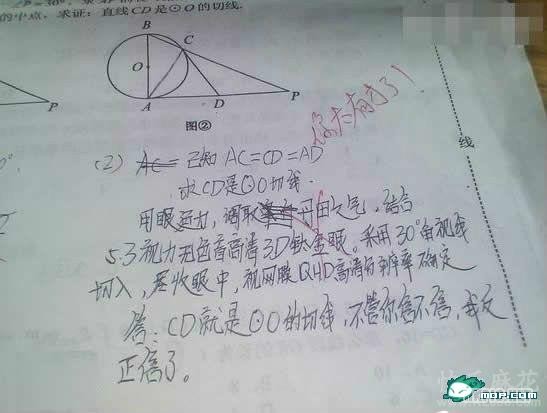 P=30°,
的中点, 求证: 直线CD是⊙O的切线.
B
C
O
A
D
P
P
图②
你太有才了!
线
(2) AC= 已知 AC=CD=AD
求CD是⊙O切线.
用眼运力, 调取 丹田之气, 结合
5.3视力无色盲高清3D钛金眼. 采用30°角视线
切入, 尽收眼中, 视网膜QHD高清分辨率确定
答: CD就是⊙O的切线, 不管你信不信, 我反
正信了。
快乐麻花
MOP.COM